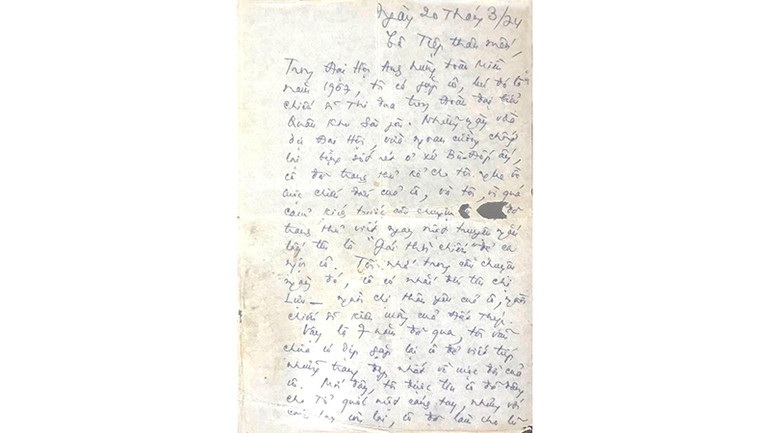 Ngày 20 Tháng 3/74
Cô Tiếp thân mến,
Trong Đại Hội Anh hùng toàn miền
năm 1967, tôi có gặp cô, lúc đó là
chiến sĩ Thi đua trong Đoàn đại biểu
Quân khu Sài gòn. Những ngày vừa
dự Đại Hội, vừa ngoan cường chống
lại bệnh sốt rét ở xứ ấy,
cô đã tranh thủ kể cho tôi nghe về
cuộc chiến đấu của cô, và tôi, vì quá
cảm kích trước câu chuyện đã
tranh thủ viết ngay một truyện ngắn
lấy tên là "Gái thời chiến" để ca
ngợi cô. Tôi nhớ trong câu chuyện
ngày đó, cô có nhắc đến tên chị
người chị thân yêu của cô, người
chiến sĩ kiên cường của
Vậy là 7 năm đã qua, tôi vẫn
chưa có dịp gặp lại cô để viết tiếp
những trang đẹp nhất về cuộc đời của
cô. Mới đây, tôi được tin cô đã dâng
cho Tổ quốc một cánh tay, nhưng với
cánh tay còn lại, cô đã làm cho